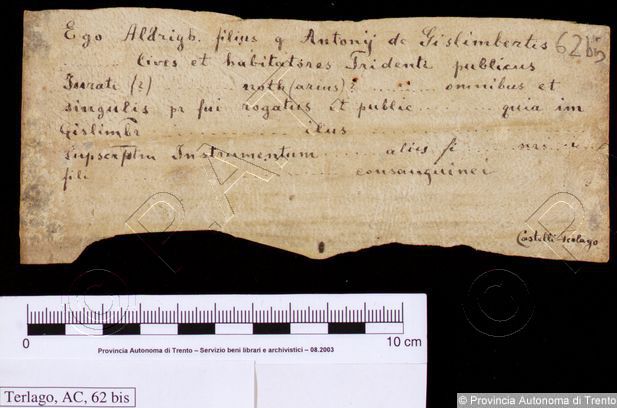 Ego Aldrigb. filius q Antonij de Gislimbertis
62 bis
...... Cives et habitatores Tridenti publicus
Jurati (?) ........ noth(arius)? ........ omnibus et
singulis pr fui rogatus et public ........ quia im
Gislimbr ........ ilus ........
supscrptm Instrumentum ........ alies fi .... nrs .. i
fili ........ consanguinei
Castelli Terlago
0 10 cm
Provincia Autonoma di Trento – Servizio beni librari e archivistici – 08.2003
Terlago, AC, 62 bis
© Provincia Autonoma di Trento